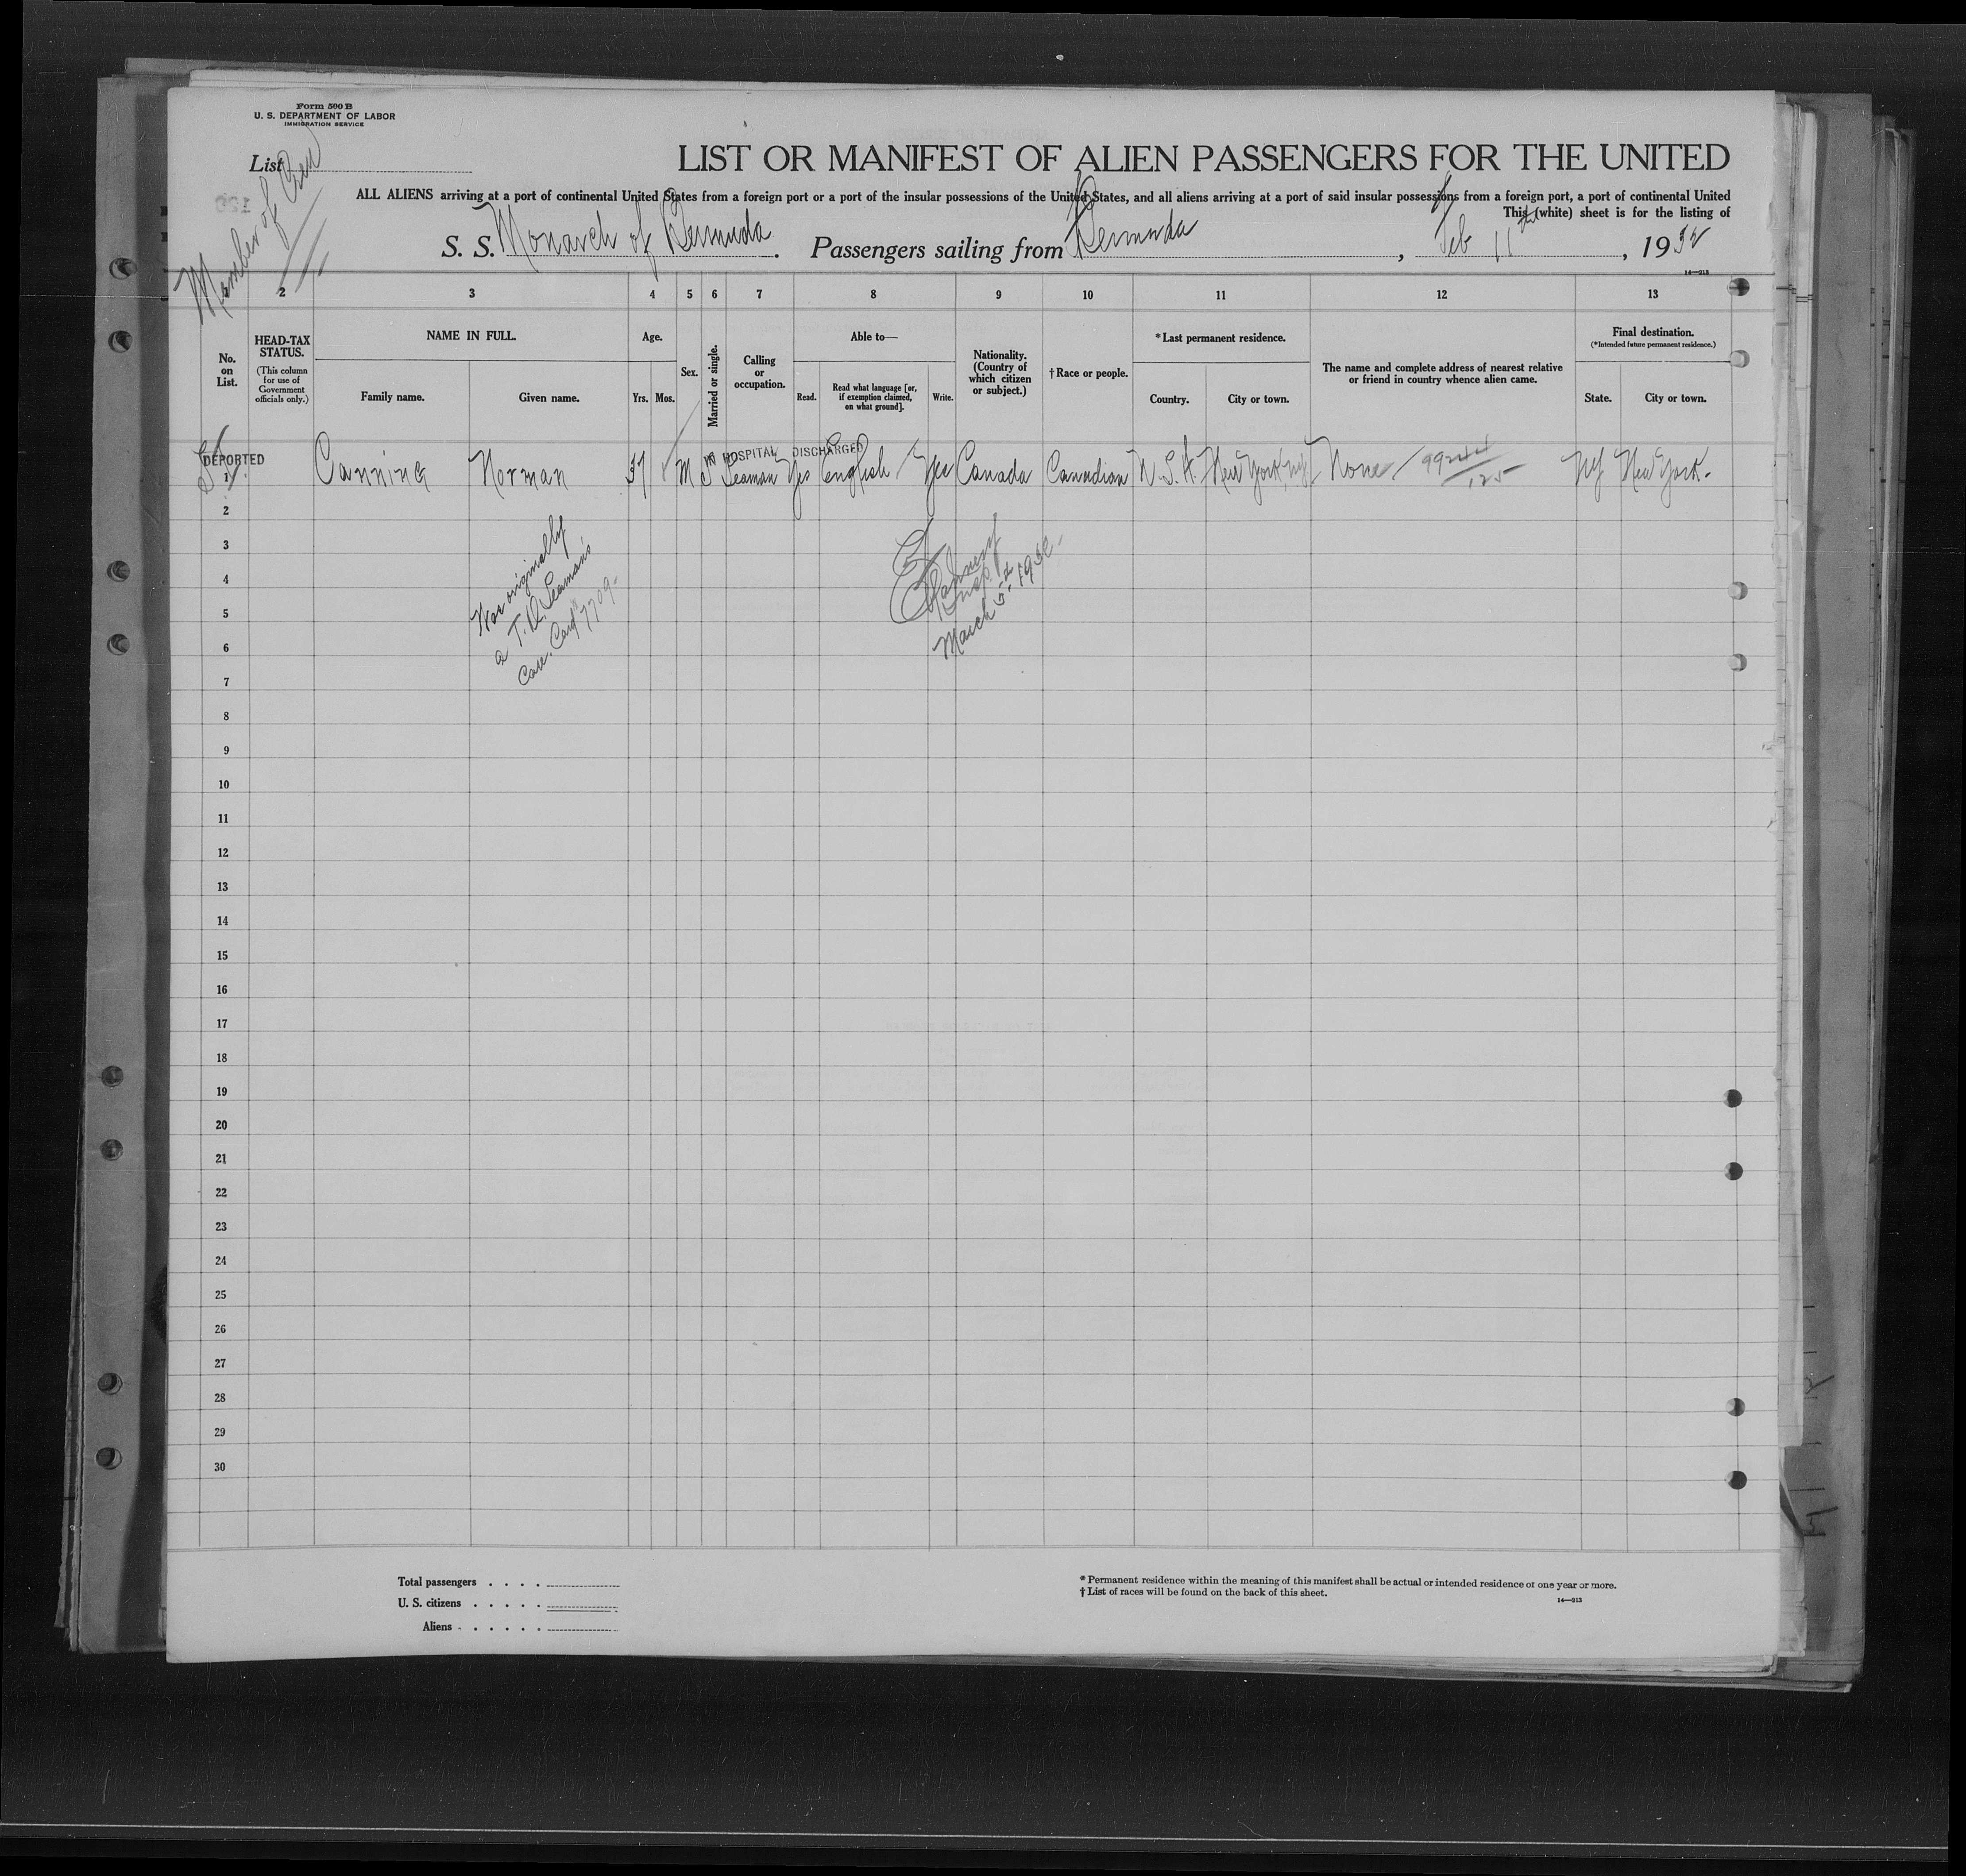 Form 500 B
U. S. DEPARTMENT OF LABOR
IMMIGRATION SERVICE
List
Member of Crew
LIST OR MANIFEST OF ALIEN PASSENGERS FOR THE UNITED
ALL ALIENS arriving at a port of continental United States from a foreign port or a part of the insular possessions of the United States, and all aliens arriving at a port of said insular possessions from a foreign port, a port of continental United
This (white) sheet is for the listing of
S. S. Monarch of Bermuda. Passengers sailing from Bermuda, Feb 11th, 1932
14—213
2 3 4 5 6 7 8 9 10 11 12 13
No. on List.
HEAD-TAX STATUS.
(This column for use of Government officials only.)
NAME IN FULL.
Family name. Given name.
Age.
Yrs. Mos.
Sex.
Married or single.
Calling or occupation.
Able to—
Read. Read what language [or, if exemption claimed, on what ground]. Write.
Nationality. (Country of which citizen or subject.)
†Race or people.
*Last permanent residence.
Country. City or town.
The name and complete address of nearest relative or friend in country whence alien came.
Final destination.
(*Intended future permanent residence.)
State. City or town.
DEPORTED
IN HOSPITAL DISCHARGED
1 Canning Norman 37 M S Seaman Yes English Yes Canada Canadian U.S.A. New York, NY. None 99244/125 NY New York.
2
3
4
5
6
7
8
9
10
11
12
13
14
15
16
17
18
19
20
21
22
23
24
25
26
27
28
29
30
Was originally
a T.D. Seaman's
Case. Card # 7709-
Insp.
March 5th 1932-
Total passengers . . . .
U. S. citizens . . . . .
Aliens . . . . . .
* Permanent residence within the meaning of this manifest shall be actual or intended residence of one year or more.
† List of races will be found on the back of this sheet.
14—213